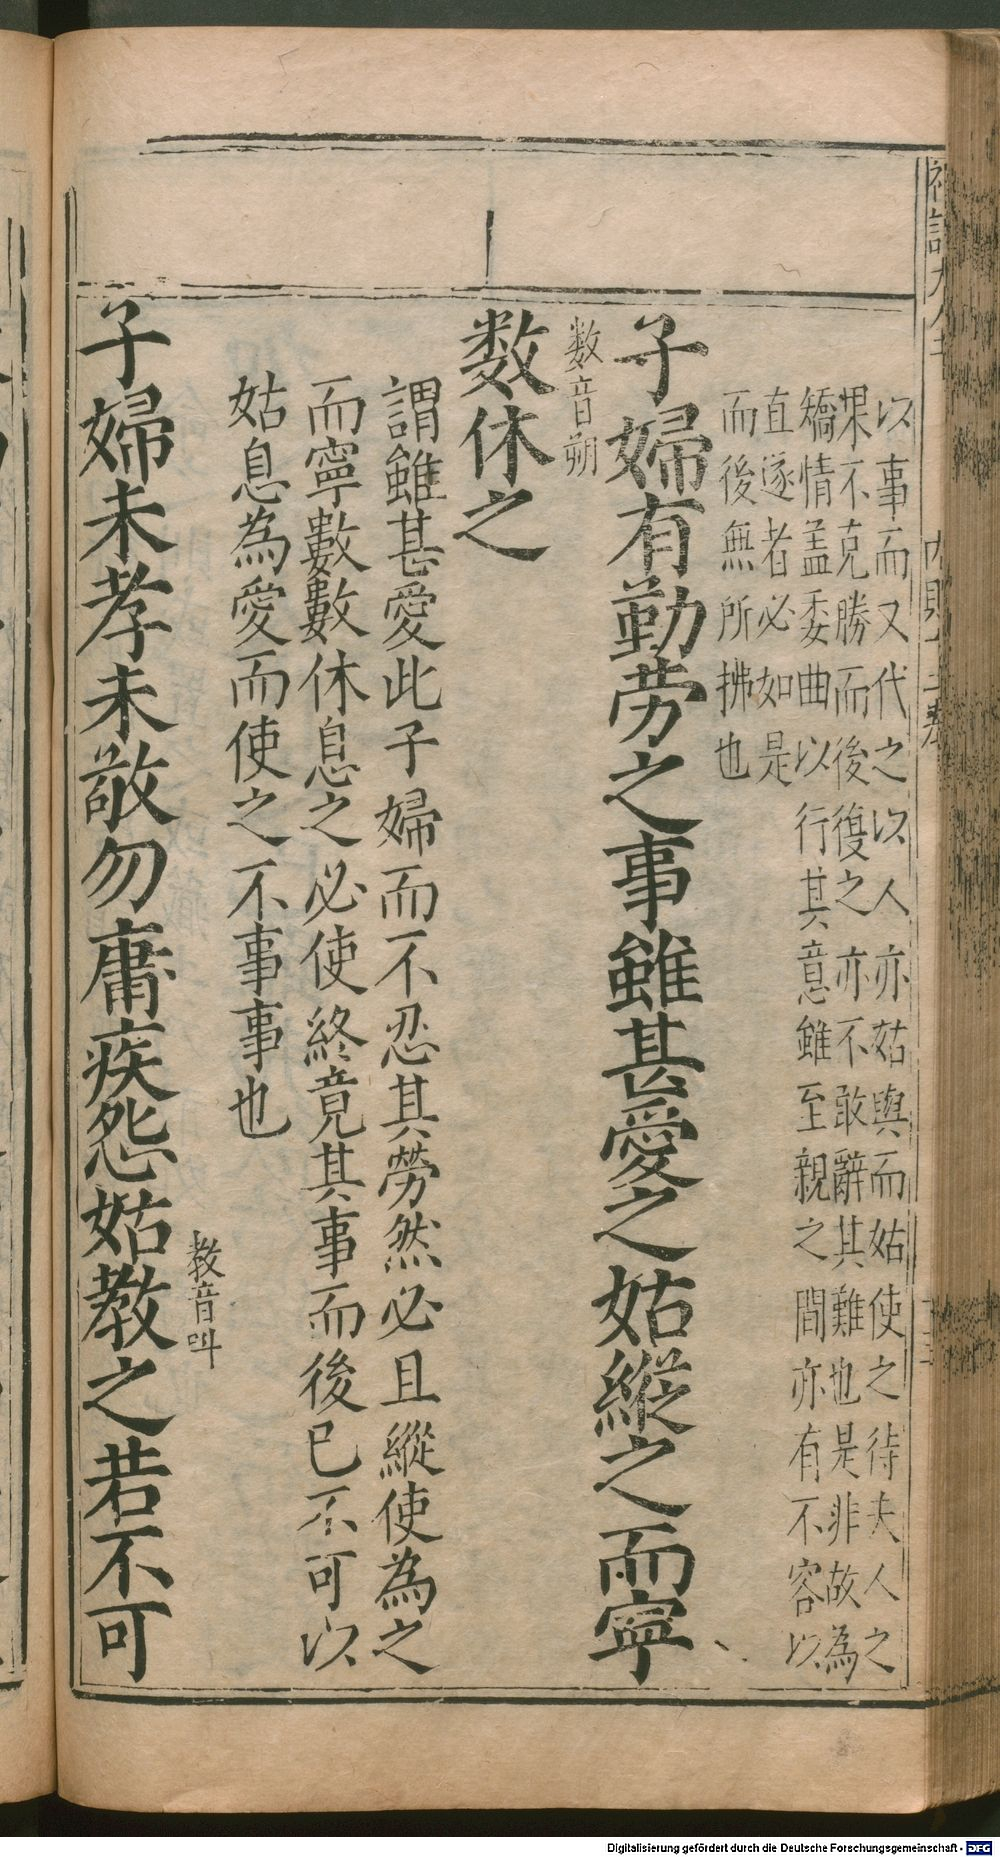 以事而又代之以人亦姑與而姑使之待夫人之
果不克勝而後復之亦不敢辭其難也是非故為
矯情盖委曲以行其意雖至親之間亦有不容以
直遂者必如是
而後無所拂也
子婦有勤劳之事雖甚愛之姑縱之而寧
数音朔
数休之
謂雖甚愛此子婦而不忍其勞然必且縱使為之
而寧數數休息之必使終竟其事而後已不可以
姑息為愛而使之不事事也
教音叫
子婦未孝未敬勿庸疾怨姑教之若不可
Digitalisierung gefördert durch die Deutsche Forschungsgemeinschaft - DFG